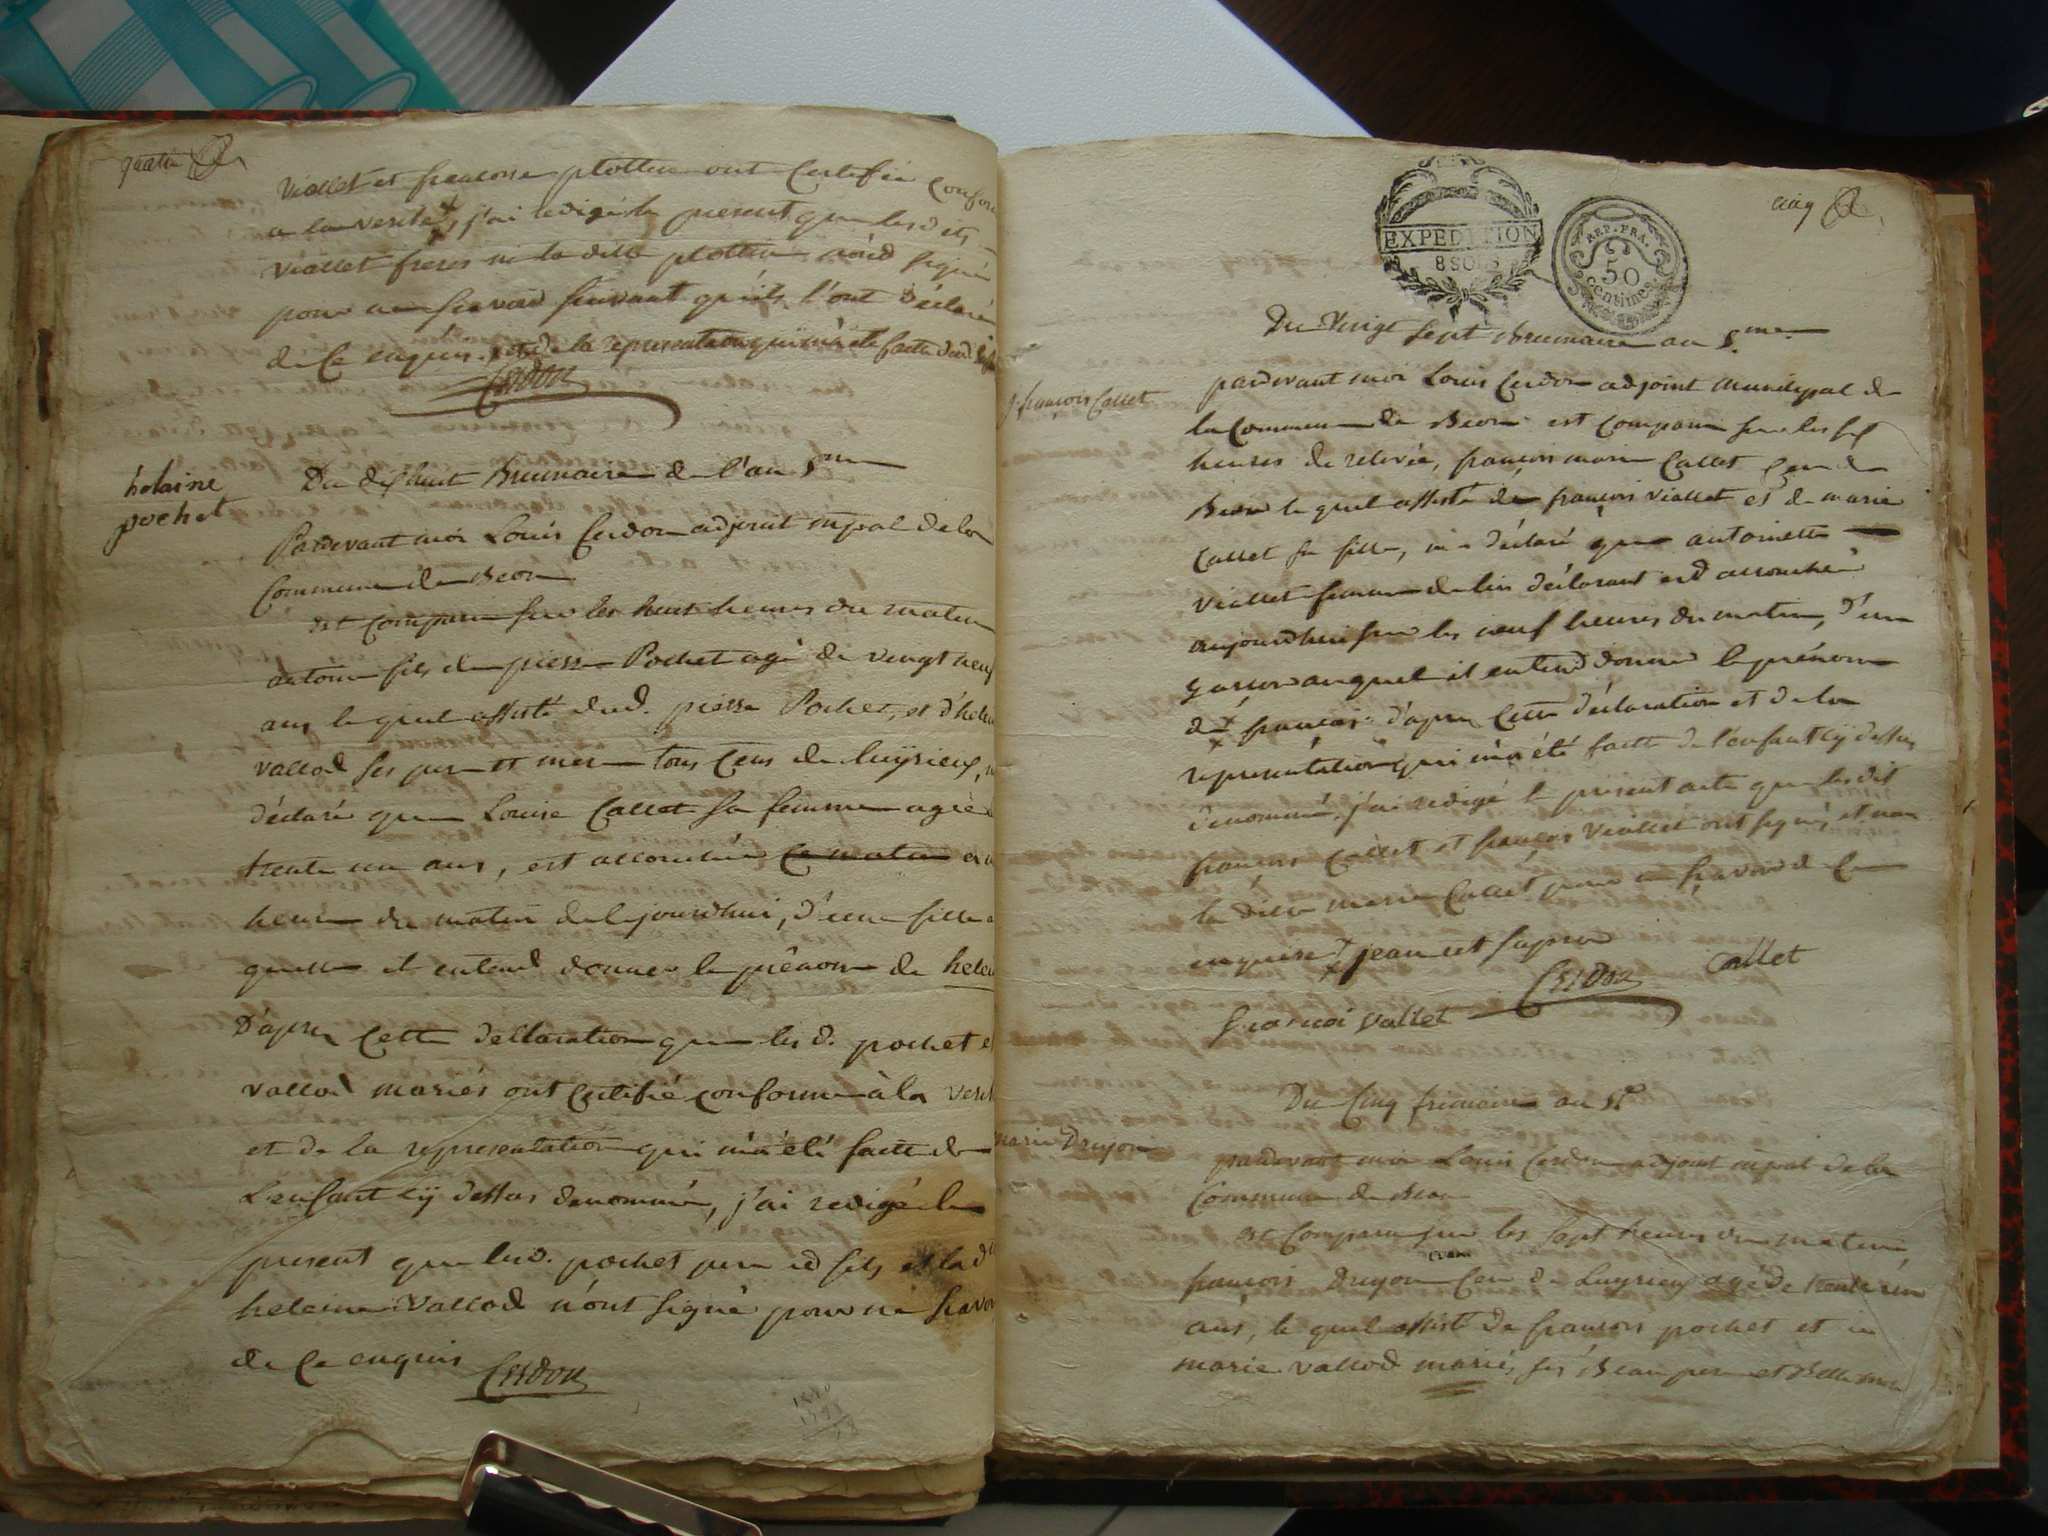 quatre
Viallet et francoise plottier ont Certifié conforme
a la verité, j'ai redigé le present que lesdits
viallet freres ni la ditte plottier n'ond signé
pour ne scavoir suivant qu'ils l'ont déclaré
de ce enquis. et de la representation qui m'a été faite dud
Cerdon
helaine
pochet
Du dix huit Brumaire de l'an 5me
Pardevant moi Louis Cerdon adjoint mpal de la
Commune de Beon
est comparu sur les huit heures du matin
antoine fils de pierre Pochet agé de vingt neuf
ans lequel assisté dud. pierre Pochet, et d'helene
vallod ses pere et mere tous Ceux de luyrieux, m
déclaré que Louise Callet sa femme agée
trente un ans, est accouchée ce matin
heure du matin de ce jourdhui, d'une fille a
quelle il entend donner le prénom de helene
D'apres Cette declaration que les d. pochet et
vallod mariés ont Certifié conforme à la verité
et de la representation qui m'a été faitte de
L'enfant cÿ dessus denommé, j'ai redigé le
present que les d. pochet pere et fils et lad
heleine Vallod n'ont signé pour ne scavoir
de ce enquis Cerdon
cinq
EXPEDITION
8 SOLS
REP. FRA.
50
centimes
Du Vingt sept Brumaire an 5.me
j. françois Callet
pardevant moi Louis Cerdon adjoint municipal de
la Commune de Beon est comparu sur les six
heures de relevée, françois marie Callet Ceux de
Beon lequel assisté de françois viallet et de marie
Callet sa fille, m'a déclaré que antoinette
Viallet femme de lui déclarant est accouchée
aujourdhui sur les neuf heures du matin, d'un
garson auquel il entend donner le prénom
de + françois d'apres Cette déclaration et de la
représentation qui m'a été faitte de l'enfant cÿ dessus
dénommé, j'ai redigé le présent acte que lesdit
françois Callet et françois Viallet ont signés et non
la ditte marie Callet pour ne scavoir de ce
enquise + jean cet sapro
Cerdon Callet
francoi vallet
Du Cinq frimaire an 5e
marie Druyon
pardevant moi Louis Cerdon adjoint mpal de la
Commune de Beon
est Comparu sur les sept heures du matin
françois Druyon Ceux de Luyrieux agé de trente
ans, lequel assisté de francois pochet et
marie vallod mariés ses Beau pere et Belle mere